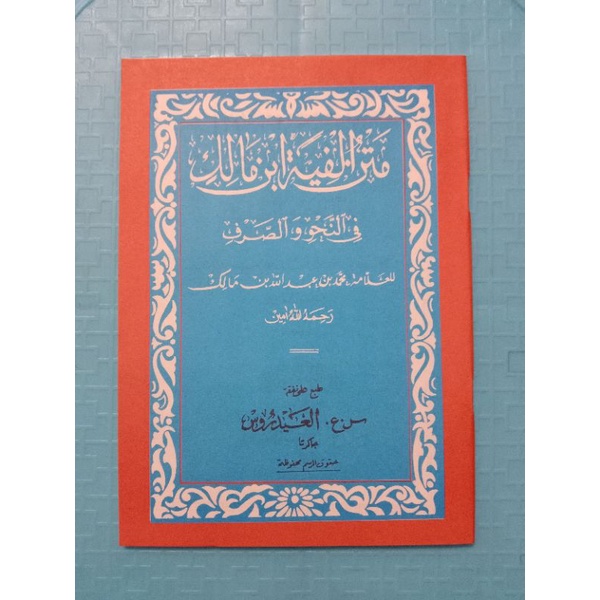 متن ألفية ابن مالك
في النحو والصرف
للعلامة محمد بن عبد الله بن مالك
رحمه الله امين
طبع على نفقة
س.ع. العيدروس
جاكرتا
حقوق الرسم محفوظة